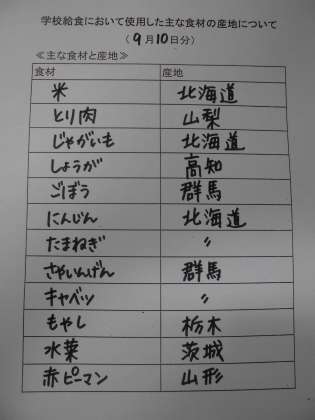 学校給食において使用した主な食材の産地について
(9月10日分)
≪主な食材と産地≫
食材 産地
米 北海道
とり肉 山梨
じゃがいも 北海道
しょうが 高知
ごぼう 群馬
にんじん 北海道
たまねぎ 〃
さやいんげん 群馬
キャベツ 〃
もやし 栃木
水菜 茨城
赤ピーマン 山形